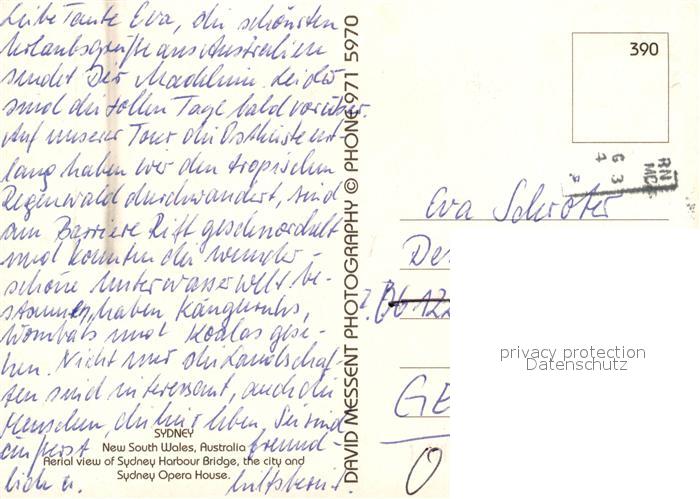 Liebe Tante Eva, die schönsten
Urlaubsgrüße aus Australien
sendet Dir Madhlein. Leider
sind die tollen Tage bald vorüber.
Auf unserer Tour die Ostküste ent-
lang haben wir den tropischen
Regenwald durchwandert, sind
am Barriere Riff geschnorchelt
und konnten die wunder-
schöne Unterwasserwelt be-
staunen, haben Kängeruhs,
Wombats und Koalas gese-
hen. Nicht nur die Landschaf-
ten sind interessant, auch die
Menschen, die hier leben. Sie sind
äußerst freund-
lich u. hilfsbereit.
SYDNEY
New South Wales, Australia
Aerial view of Sydney Harbour Bridge, the city and
Sydney Opera House.
DAVID MESSENT PHOTOGRAPHY © PHONE 971 5970
390
RN
MC
6 3
4
Eva Schröter
De
0612
GE
O
privacy protection
Datenschutz